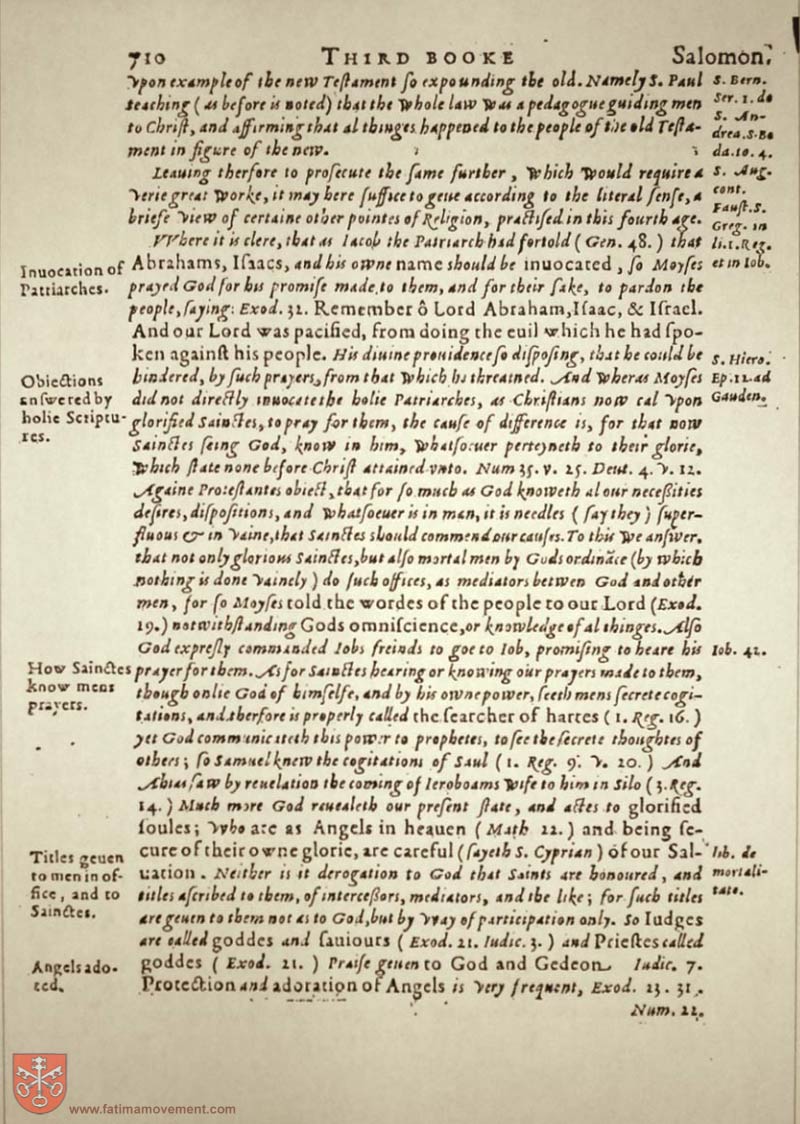 710 THIRD BOOKE Salomon.
Vpon example of the new Testament so expounding the old. Namely S. Paul
teaching (as before is noted) that the whole law was a pedagogue guiding men
to Christ, and affirming that al thinges happened to the people of the old Testa-
ment in figure of the new.
Leauing therfore to prosecute the same further, which would require a
verie great worke, it may here suffice to geue according to the literal sense, a
briefe view of certaine other pointes of Religion, practised in this fourth age.
VVhere it is clere, that as Iacob the Patriarch had fortold (Gen. 48.) that
Abrahams, Isaacs, and his owne name should be inuocated, so Moyses
prayed God for his promise made to them, and for their sake, to pardon the
people, saying: Exod. 32. Remember ô Lord Abraham, Isaac, & Israel.
And our Lord was pacified, from doing the euil which he had spo-
ken against his people. His diuine prouidence so disposing, that he could be
hindered, by such prayers, from that which he threatned. And wheras Moyses
did not directly inuocate the holie Patriarches, as Christians now cal vpon
glorified Sainctes, to pray for them, the cause of difference is, for that now
Sainctes seing God, know in him, whatsoeuer perteyneth to their glorie,
which state none before Christ attained vnto. Num 35. v. 25. Deut. 4. v. 12.
Againe Protestantes obiect, that for so much as God knoweth al our necessities
desires, dispositions, and whatsoeuer is in man, it is needles (say they) super-
fluous & in vaine, that Sainctes should commend our causes. To this we answer,
that not only glorious Sainctes, but also mortal men by Gods ordināce (by which
nothing is done vainely) do such offices, as mediators betwen God and other
men, for so Moyses told the wordes of the people to our Lord (Exod.
19.) notwithstanding Gods omniscience, or knowledge of al thinges. Also
God expresly commanded Iobs freinds to goe to Iob, promising to heare his
prayer for them. As for Sainctes hearing or knowing our prayers made to them,
though onlie God of himselfe, and by his owne power, seeth mens secrete cogi-
tations, and therfore is properly called the searcher of hartes (1. Reg. 16.)
yet God communicateth this power to prophetes, to see the secrete thoughtes of
others; so Samuel knew the cogitations of Saul (1. Reg. 9. v. 20.) And
Ahias saw by reuelation the coming of Ieroboams wife to him in Silo (3. Reg.
14.) Much more God reuealeth our present state, and actes to glorified
soules; who are as Angels in heauen (Math 22.) and being se-
cure of their owne glorie, are careful (sayeth S. Cyprian) of our Sal-
uation. Neither is it derogation to God that Saints are honoured, and
titles ascribed to them, of intercessors, mediators, and the like; for such titles
are geuen to them not as to God, but by way of participation only. So Iudges
are called goddes and sauiours (Exod. 21. Iudic. 3.) and Priestes called
goddes (Exod. 21.) Praise geuen to God and Gedeon Iudic. 7.
Protection and adoration of Angels is very frequent, Exod. 23. 31.
Num. 22.
Inuocation of
Patriarches.
Obiections
answered by
holie Scriptu-
res.
How Sainctes
know mens
prayers.
Titles geuen
to men in of-
fice, and to
Sainctes.
Angels ado-
red.
S. Bern.
Ser. 1. de
S. An-
drea. S. Be
da. to. 4.
S. Aug.
cont.
Faust. S.
Greg. in
li. 1. Reg.
et in Iob.
S. Hiero.
Ep. 12. ad
Gauden.
Iob. 42.
lib. de
mortali-
tate.
www.fatimamovement.com